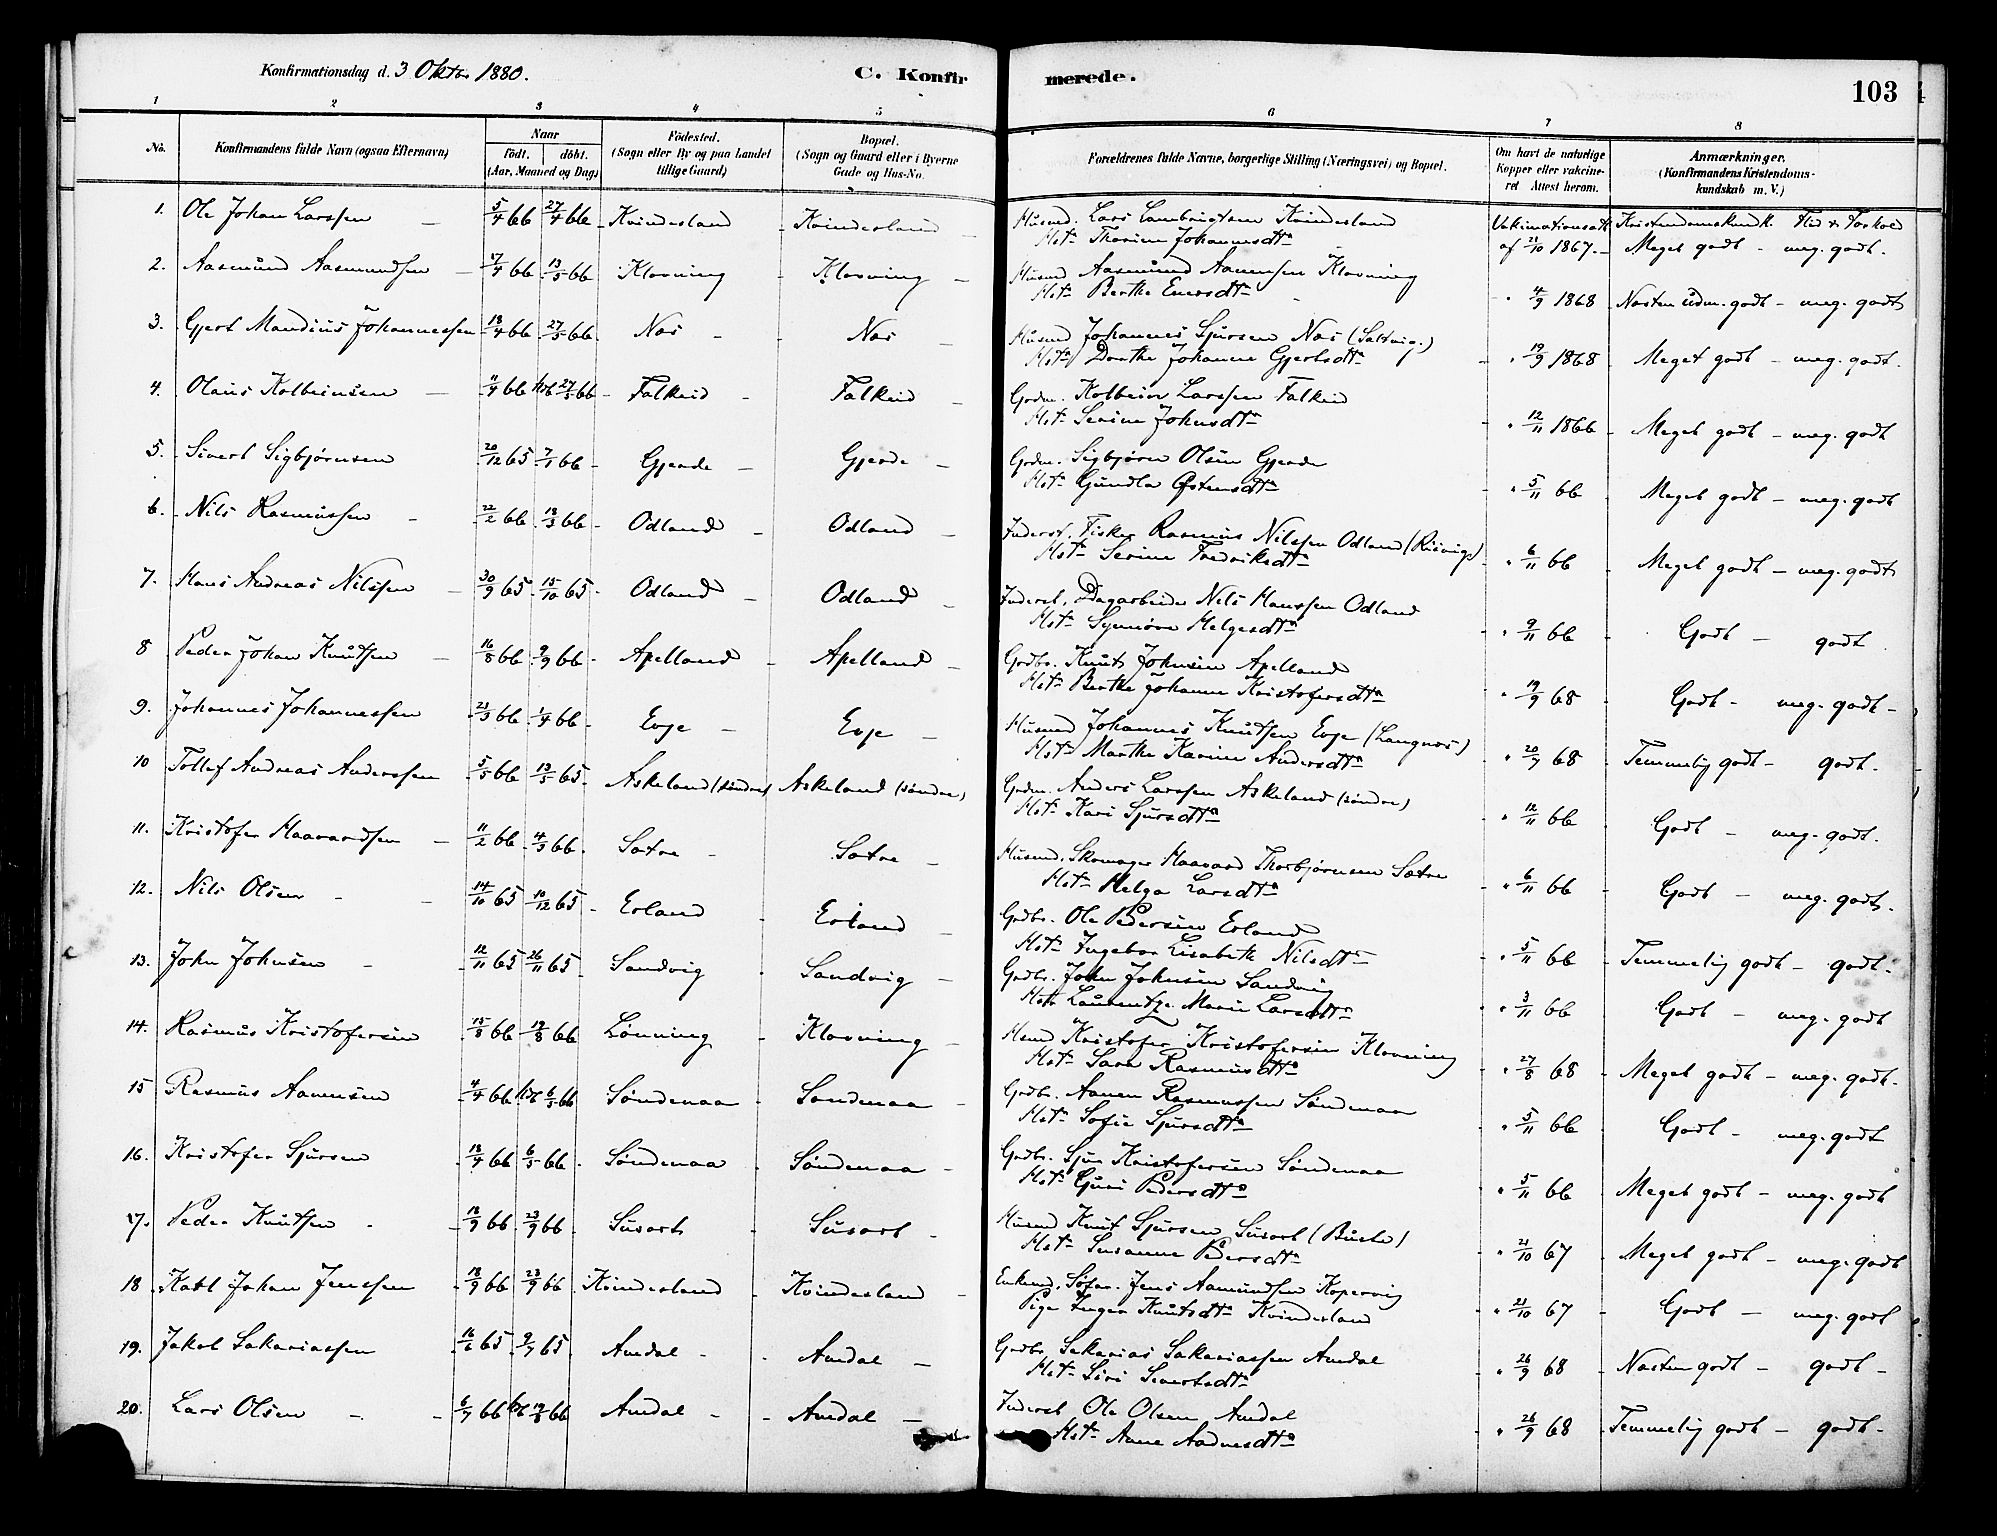 Konfirmationsdag d. 3 Oktbr. 1880.
C. Konfirmerede.
103
1 2 3 4 5 6 7 8
No. Konfirmandens fulde Navn (ogsaa Efternavn) Naar födt. döbt. (Aar, Maaned og Dag) Födested. (Sogn eller By og paa Landet tillige Gaard) Bopæl. (Sogn og Gaard eller i Byerne Gade og Hus-No. Forældrenes fulde Navne, borgerlige Stilling (Næringsvei) og Bopæl. Om havt de naturlige Kopper eller vakcineret Attest herom. Anmærkninger. (Konfirmandens Kristendomskundskab m. V.)
1. Ole Johan Larssen 5/4 66 27/4 66 Kvindesland Kvindesland Husmd. Lars Lambrigtsen Kvindesland Vakcinationsatt. Kristendomskundk. Flid & Forhold
Hst. Thorine Johannesdtr. af 21/10 1867. Meget godt - meg. godt.
2. Aasmund Aasmundsen 17/4 66 13/5 66 Klovning Klovning Husmd Aasmund Aanensen Klovning
Hst. Berthe Enersdtr. " 4/9 1868 Næsten udm. godt - meg. godt
3. Gjert Mandius Johannessen 18/4 66 27/5 66 Næs Næs Husmd Johannes Sjursen Næs (Saltvig.)
Hst. Dorthe Johanne Gjertsdtr. " 19/9 1868 Meget godt - meg. godt.
4. Olaus Kolbeinsen 11/4 66 27/5 66 Falkeid Falkeid Grdm. Kolbein Larssen Falkeid
Hst. Serine Johnsdtr. " 12/11 1866 Meget godt - meg. godt
5. Sivert Sigbjørnsen 20/12 65 7/1 66 Gjerde Gjerde Grdm. Sigbjørn Olsen Gjerde
Hst. Gundla Østensdtr. " 5/11 66 Meget godt - meg. godt
6. Nils Rasmussen 22/2 66 18/3 66 Odland Odland Inderst. Fisker Rasmus Nilssen Odland
Hst. Serine Fredriksdtr. " 6/11 66 Meget godt - meg. godt
7. Hans Andreas Nilssen 30/9 65 15/10 65 Odland Odland Inderst, Dagarbeider Nils Hanssen Odland
Hst. Synnøve Helgesdtr. " 9/11 66 Godt - godt
8 Peder Johan Knutsen 16/8 66 9/9 66 Apelland Apelland Grdbr. Knut Johnsen Apelland
Hst. Berthe Johanne Kristofersdtr. " 19/9 68 Godt - meg. godt
9. Johannes Johannessen 21/3 66 1/4 66 Evje Evje Husmd Johannes Knutsen Evje (Langnes)
Hst. Marthe Karine Andersdtr. " 20/7 68 Temmelig godt - godt.
10 Tollef Andreas Anderssen 5/5 66 13/5 65 Askeland (søndre) Askeland (søndre) Grdm. Anders Larssen Askeland (søndre)
Hst. Kari Sjursdtr. " 12/11 66 Godt - meg. godt.
11. Kristofer Haavardsen 11/2 66 4/3 66 Sætre Sætre Husmd. Skomager Haavard Thorbjørnsen Sætre
Hst. Helga Larsdtr. " 6/11 66 Godt - meg. godt.
12. Nils Olsen 14/10 65 10/12 65 Erland Erland Grdbr. Ole Pedersen Erland
Hst. Ingebor Lisabeth Nilsdtr. " 5/11 66 Temmelig godt - godt.
13. John Johnsen 12/11 65 26/11 65 Sandvig Sandvig Grdbr. John Johnsen Sandvig
Hst. Laurentze Marie Larsdtr. " 3/11 66 Godt - meg. godt
14. Rasmus Kristofersen 15/8 66 19/8 66 Lønning Klovning Hsmd Kristofer Kristofersen Klovning
Hst. Sara Rasmusdtr. " 27/8 68 Meget godt - meg. godt.
15 Rasmus Aanensen 4/4 66 6/5 66 Søndenaa Søndenaa Grdbr. Aanen Rasmussen Søndenaa
Hst. Sofie Sjursdtr. " 5/11 66 Godt - meg. godt
16. Kristofer Sjursen 18/4 66 6/5 66 Søndenaa Søndenaa Grdbr. Sjur Kristofersen Søndenaa
Hst. Guri Pedersdtr. " 5/11 66 Meget godt - meg. godt
17. Peder Knutsen 18/9 66 23/9 66 Susort Susort Husmd Knut Sjursen Susort
Hst. Susanne Pedersdtr. " 21/10 67 Meget godt - meg. godt
18 Karl Johan Jenssen 18/9 66 23/9 66 Kvindesland Kvindesland Enkemd. Søfar. Jens Aamundsen Kopervig
Pige Inger Knutsdtr. Kvindesland " 21/10 67 Godt - meg. godt
19. Jakob Sakariassen 16/6 65 9/7 65 Amdal Amdal Grdbr. Sakarias Sakariassen Amdal
Hst. Siri Sivertsdtr. " 26/9 68 Næsten godt - godt -
20. Lars Olsen 6/7 66 19/8 66 Amdal Amdal Inderst Ole Olsen Amdal
Hst. Anne Aadnesdtr. " 26/9 68 Temmelig godt - godt.